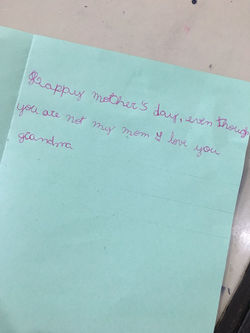 Happy mother's day, even though
you are not my mom I love you
grandma